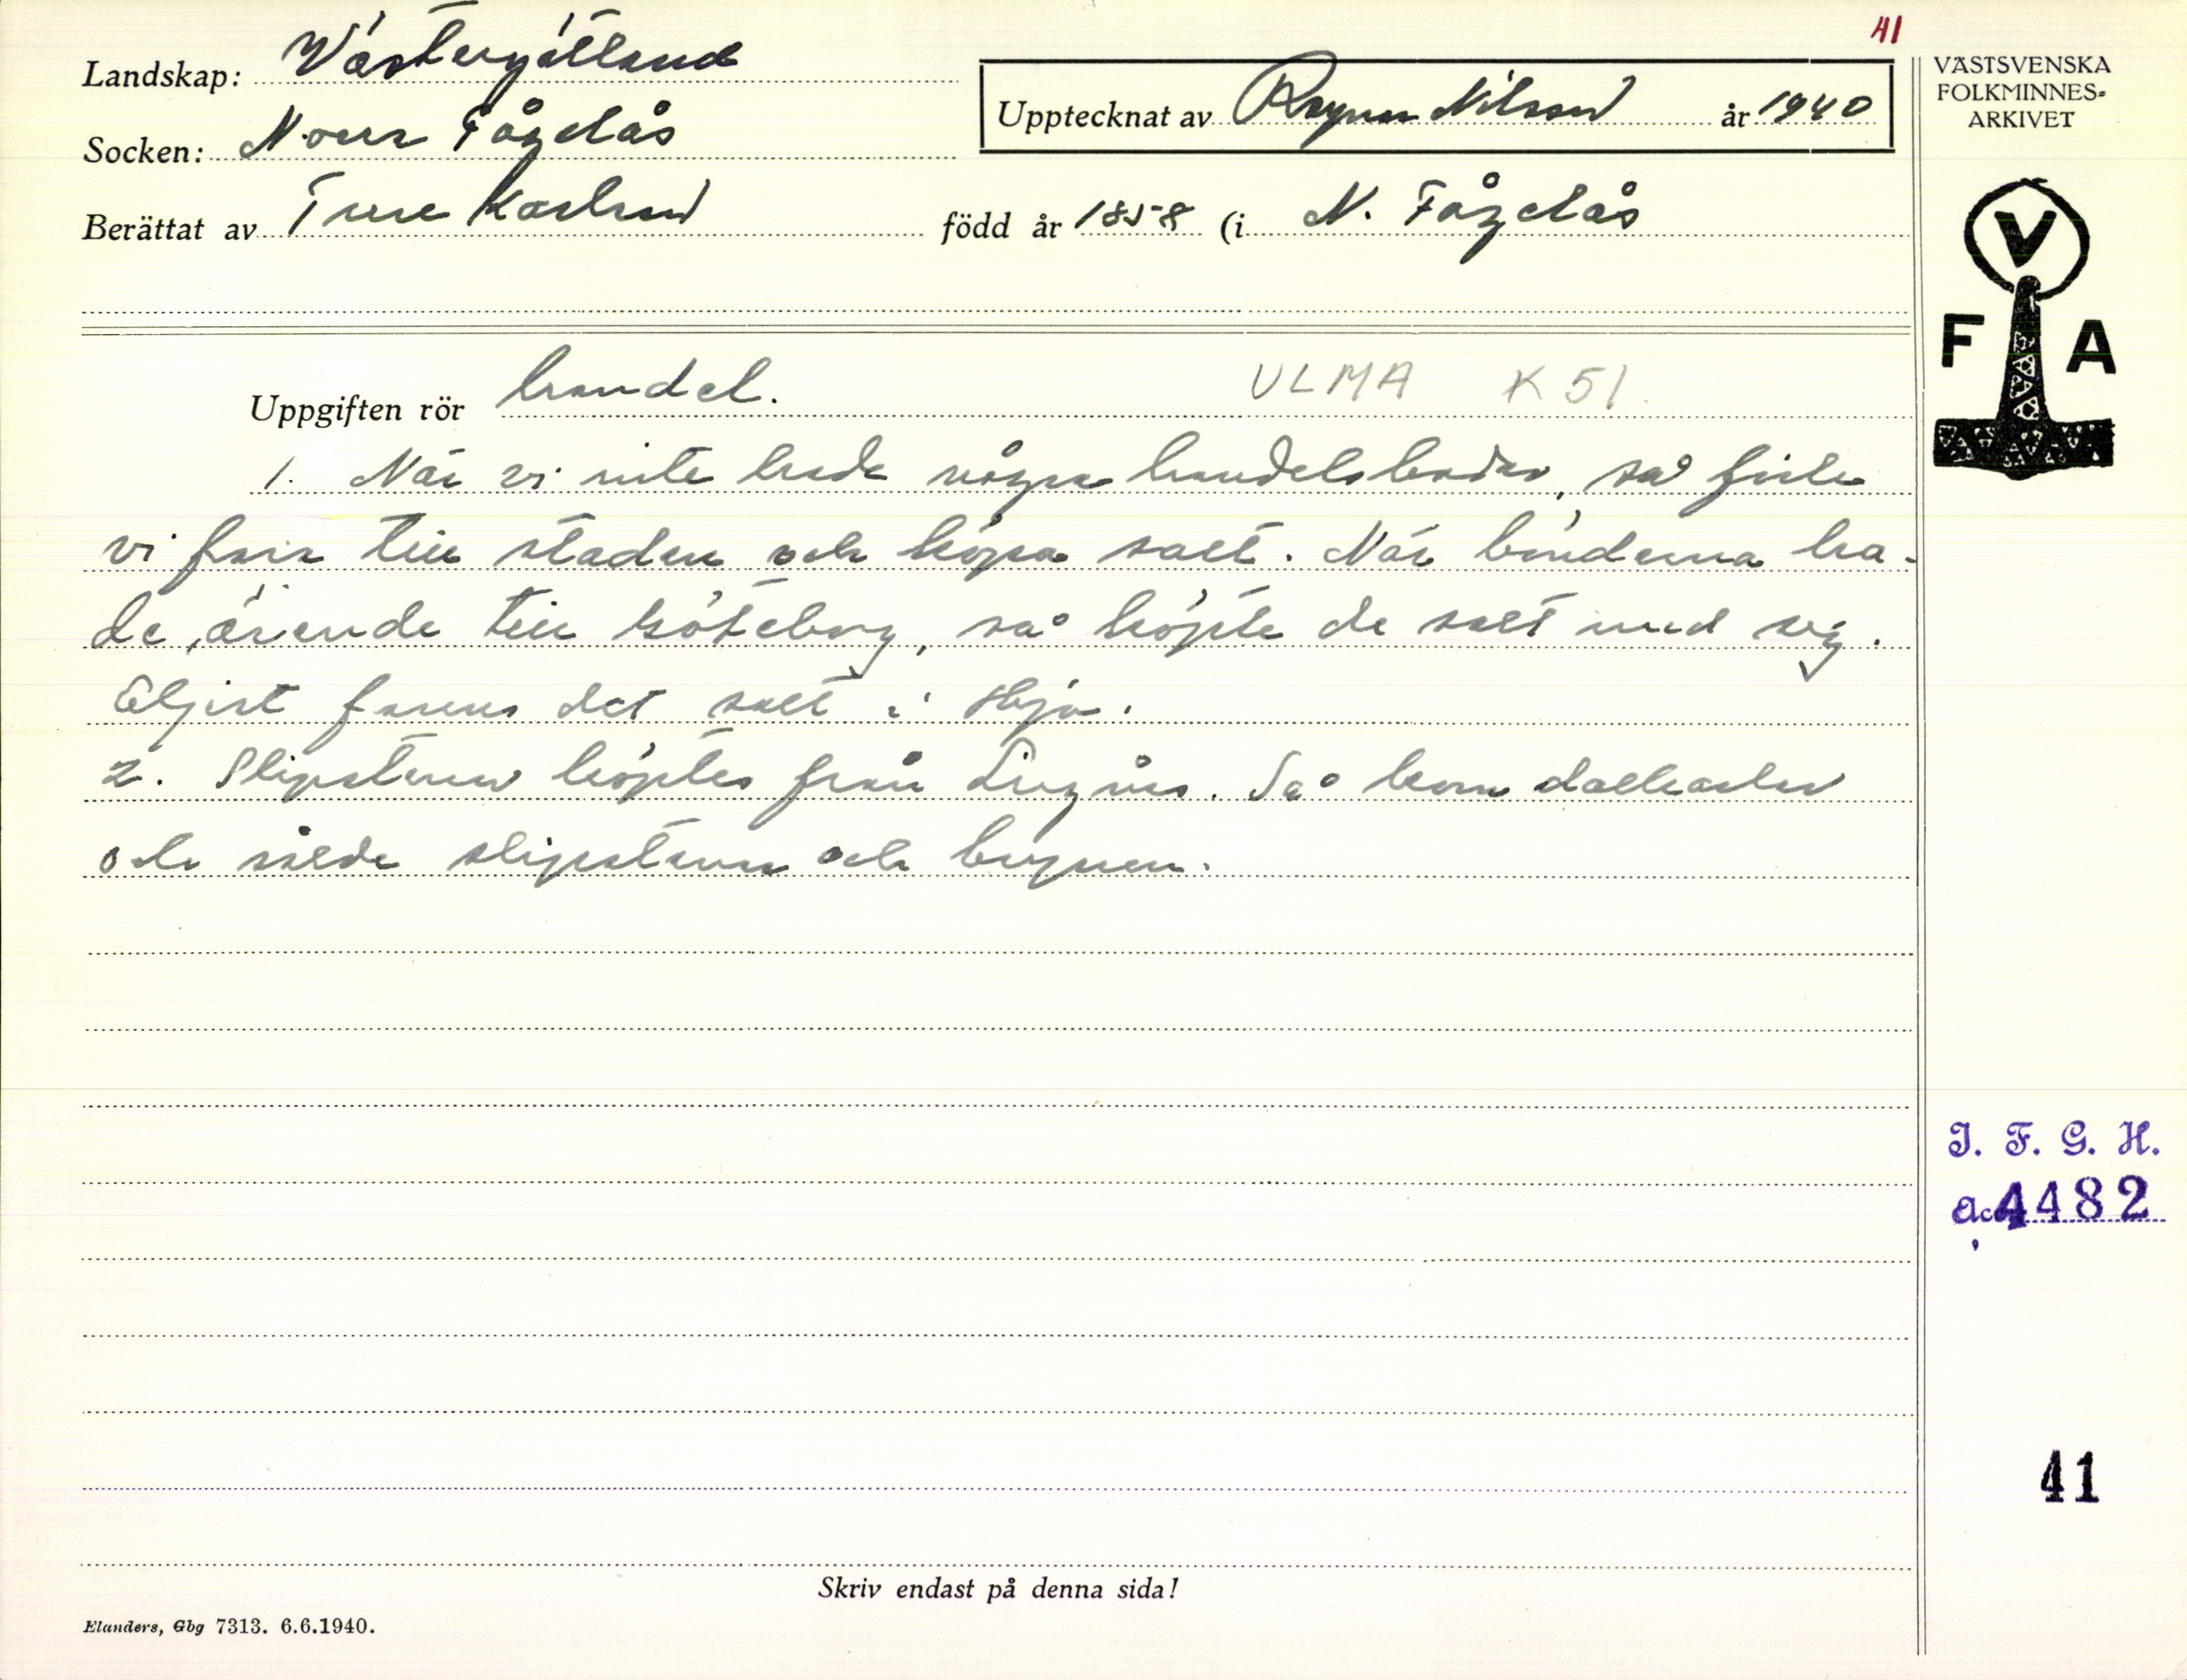 41
Landskap: Västergötland
Socken: Norra Fågelås
Upptecknat av Ragnar Nilsson år 1940
Berättat av Ture Karlsson född år 1858 (i N. Fågelås
VÄSTSVENSKA
FOLKMINNES-
ARKIVET
V
F A
Uppgiften rör handel. ULMA K 51.
1. När vi inte hade några handelsbodar, så fick
vi fara till staden och köpa salt. När bönderna ha-
de ärende till Göteborg, så köpte de salt med sig.
Eljest fanns det salt i Hjo.
2. Slipstenar köptes från Lugnås. Så kom dalkarlar
och sålde slipstenar och brynen.
I. F. G. H.
acc. 4482
41
Skriv endast på denna sida!
Elanders, Gbg 7313. 6.6.1940.